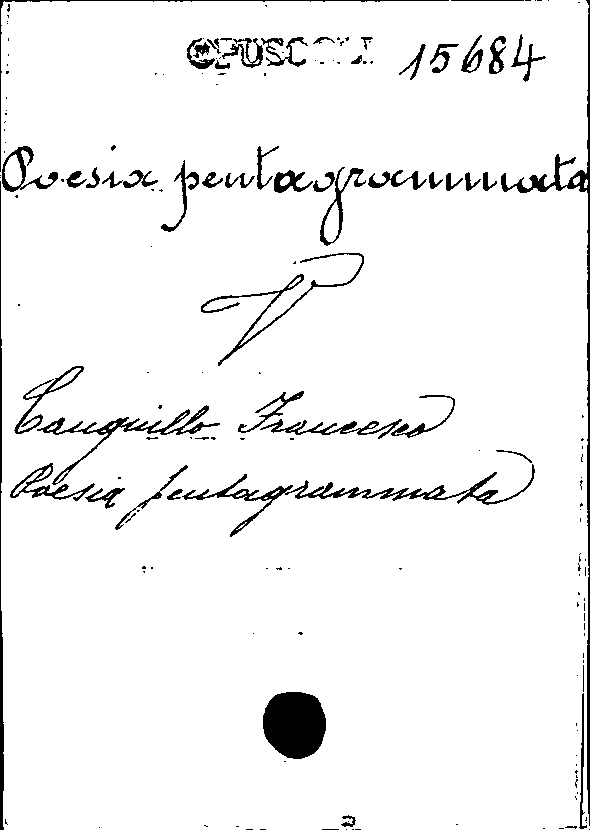 OPUSCOLI 15684
Poesia pentagrammata
V
Canguillo Francesco
Poesia pentagrammata